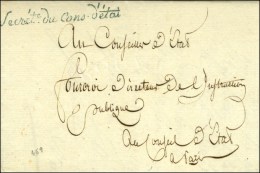 Secrét. du Cons. d'état
Au Conseiller d'État
Fourcroi, Directeur de l'Instruction
publique
Au Conseil d'État
à Paris